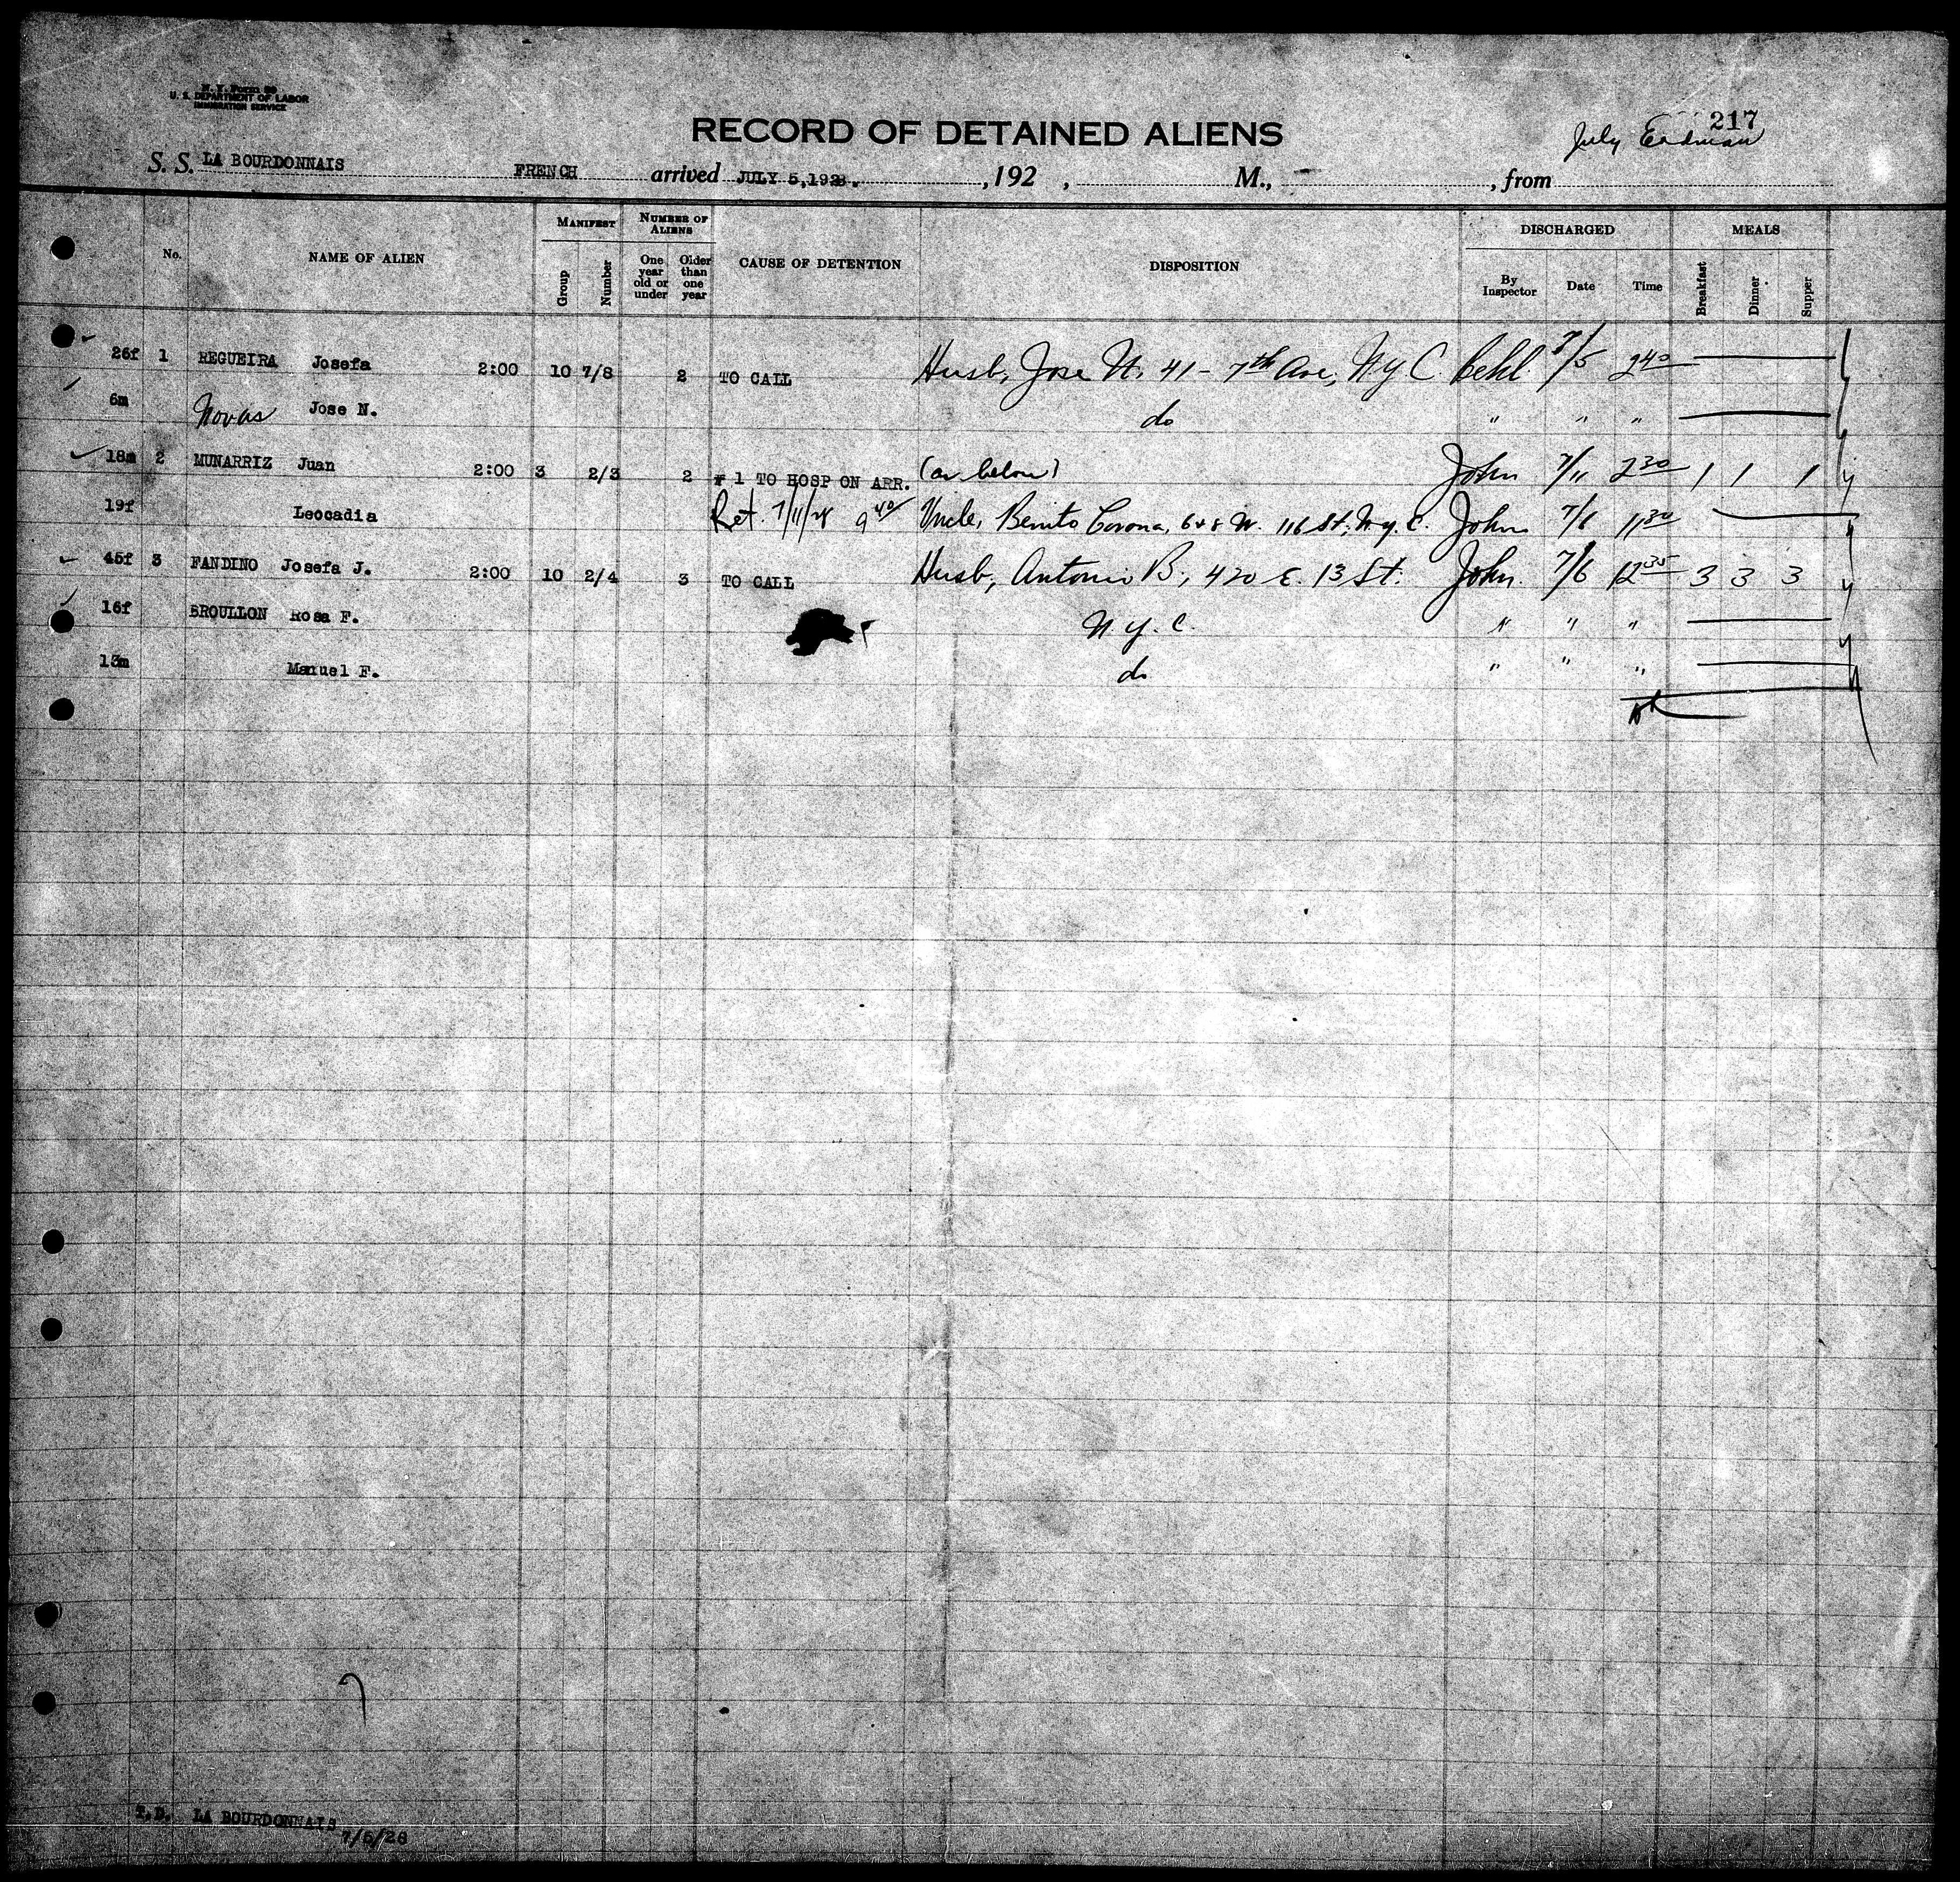 N. Y. Form 99
U. S. DEPARTMENT OF LABOR
IMMIGRATION SERVICE
217
RECORD OF DETAINED ALIENS
July Erdman
S. S. LA BOURDONNAIS FRENCH arrived JULY 5, 1928. , 192 , M., , from
No. NAME OF ALIEN MANIFEST NUMBER OF ALIENS CAUSE OF DETENTION DISPOSITION DISCHARGED MEALS
Group Number One year old or under Older than one year By Inspector Date Time Breakfast Dinner Supper
26f 1 REGUEIRA Josefa 2:00 10 7/8 2 TO CALL Husb, Jose N. 41 - 7th Ave, N.Y.C. 7/5 2 40
6m Novas Jose N. do " " "
18m 2 MUNARRIZ Juan 2:00 3 2/3 2 # 1 TO HOSP ON ARR. (as below) John 7/11 2 30 1 1 1
19f Leocadia Ret. 7/11/28 9 40 Uncle, Benito Corona, 648 W. 116 St, N.Y.C. John 7/6 11 30
45f 3 FANDINO Josefa J. 2:00 10 2/4 3 TO CALL Husb, Antonio B, 420 E. 13 St. John 7/6 12 35 3 3 3
16f BROULLON Rosa F. N.Y.C. " " "
13m Manuel F. do " " "
T.D. LA BOURDONNAIS
7/5/28